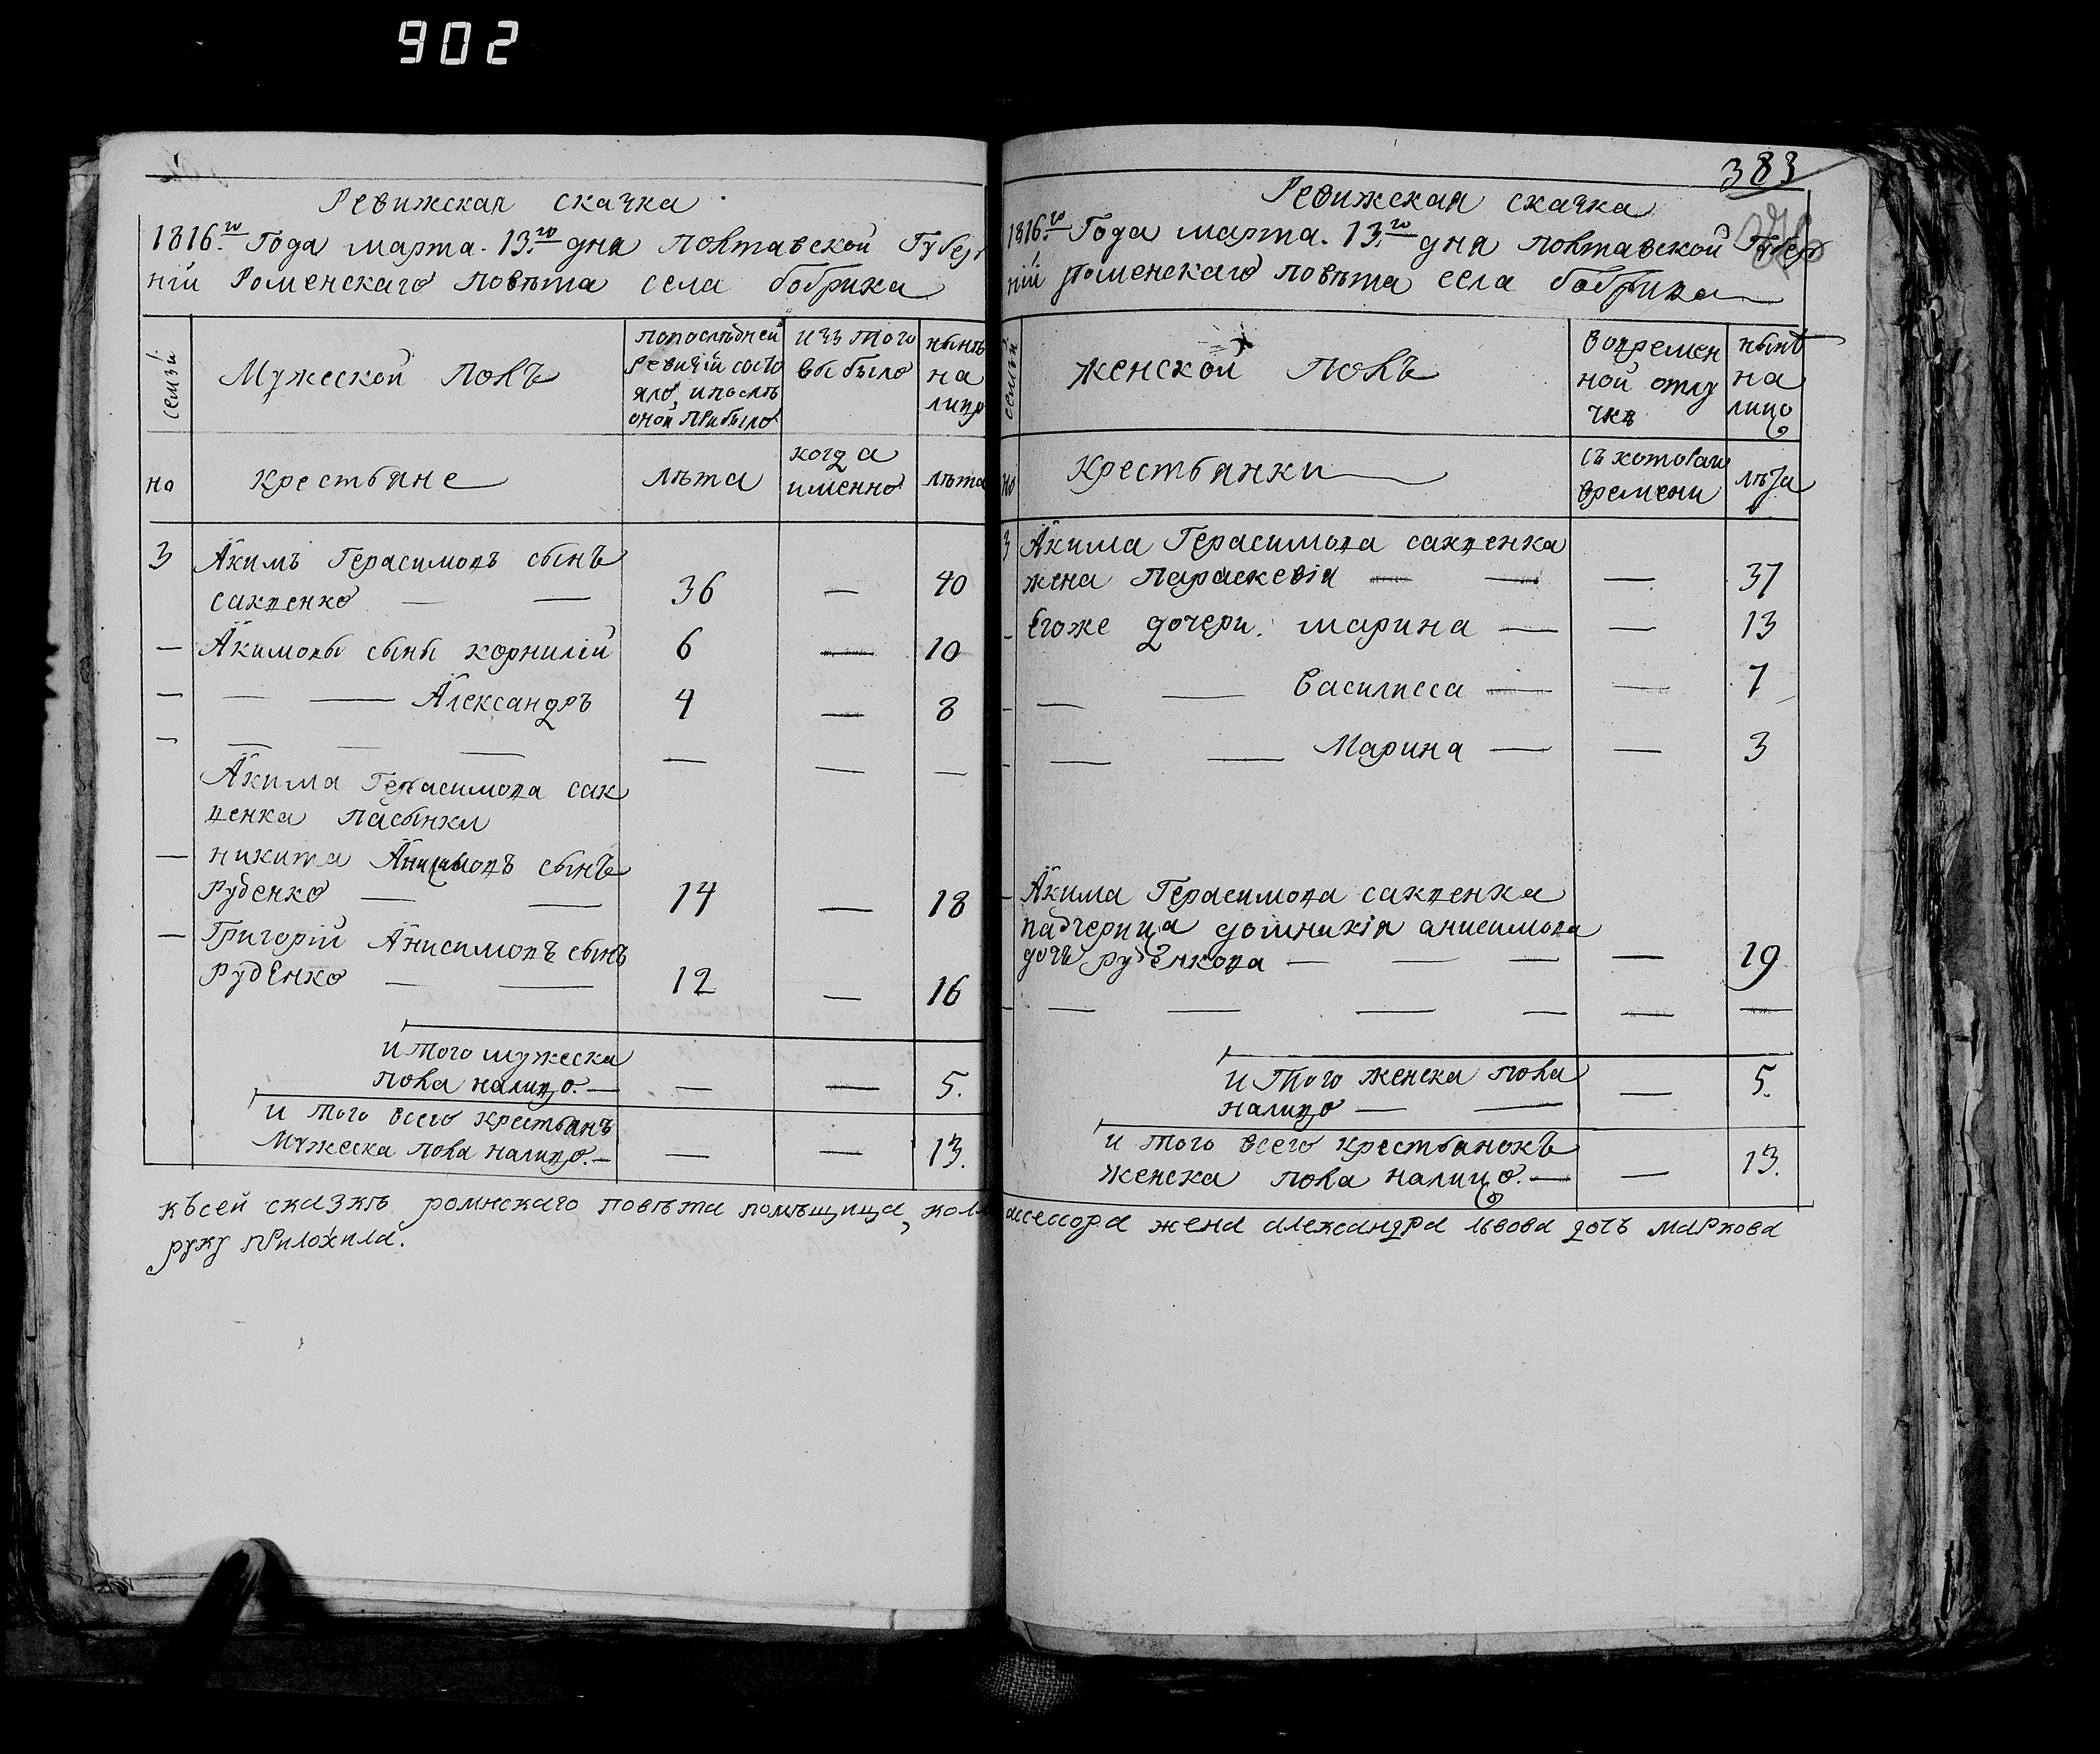 902
Ревижская скачка
1816го Года марта. 13го дня Полтавской Губер
ніи Роменскаго повѣта села бобрика
семьи
Мужеской полъ
попослѣдней
Ревизіи состо
яло, ипослѣ
оной прибыло
изъ того
выбыло
нынѣ
на
лицо
но
крестьяне
лѣта
когда
именно
лѣта
3
Акимъ Герасимовъ сынъ
сакпенко — — 36 — 40
— Акимовы сыны корнилій 6 — 10
— — — Александръ 4 — 8
— — — — — — —
Акима Герасимова сак
пенка пасынки
— никита Анисимовъ сынъ
Руденко — — 14 — 18
— Григорій Анисимовъ сынъ
Руденко — — 12 — 16
и того мужеска
пола налицо. — — — 5.
и того всего крестьянъ
Мужеска пола налицо. — — — 13.
късей сказкѣ ромнскаго повѣта помѣщица,
руку приложила.
383
Ревижская скачка
1816го Года марта. 13го дня полтавской Губер
ніи роменскаго повѣта села бобрика
семьи
женской полъ
вовремен
ной отлу
чкѣ
нынѣ
на
лицо
но
крестьянки
съ котораго
времени
лѣта
3 Акима Герасимова сакпенка
жена Параскевія — — — 37
— Егоже дочери. марина — — 13
— — — Василисса — — 7
— — — Марина — — 3
— Акима Герасимова сакпенка
падчерица домникія анисимова
дочь руденкова — — — — 19
— — — — — — —
и того женска пола
налицо — — — 5.
и того всего крестьянокъ
женска пола налицо. — — 13.
ассесора жена александра львова дочь маркова